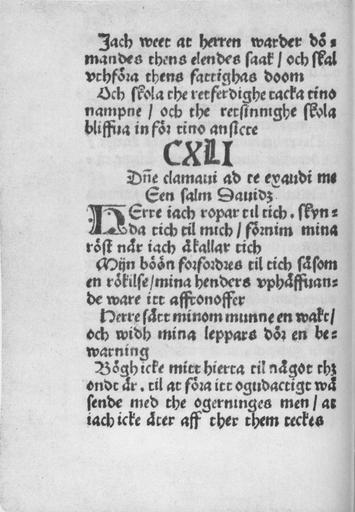 Jach weet at herren warder dö-
mandes thens elendes saak / och skal
vthföra thens fattighas doom
Och skola the retferdighe tacka tino
nampne / och the retsinnighe skola
bliffua in för tino ansicte
CXLI
Dñe clamaui ad te exaudi me
Een salm Dauidz
HErre iach ropar til tich, skyn-
da tich til mich / förnim mina
röst när iach åkallar tich
Mijn böön forfordres til tich såsom
en rökilse / mina henders vphäffuan-
de ware itt afftonoffer
Herre sätt minom munne en wakt /
och widh mina leppars dör en be-
warning
Bögh icke mitt hierta til något thz
ondt är, til at föra itt ogudactigt wä
sende med the ogerninges men / at
iach icke äter aff ther them teckes